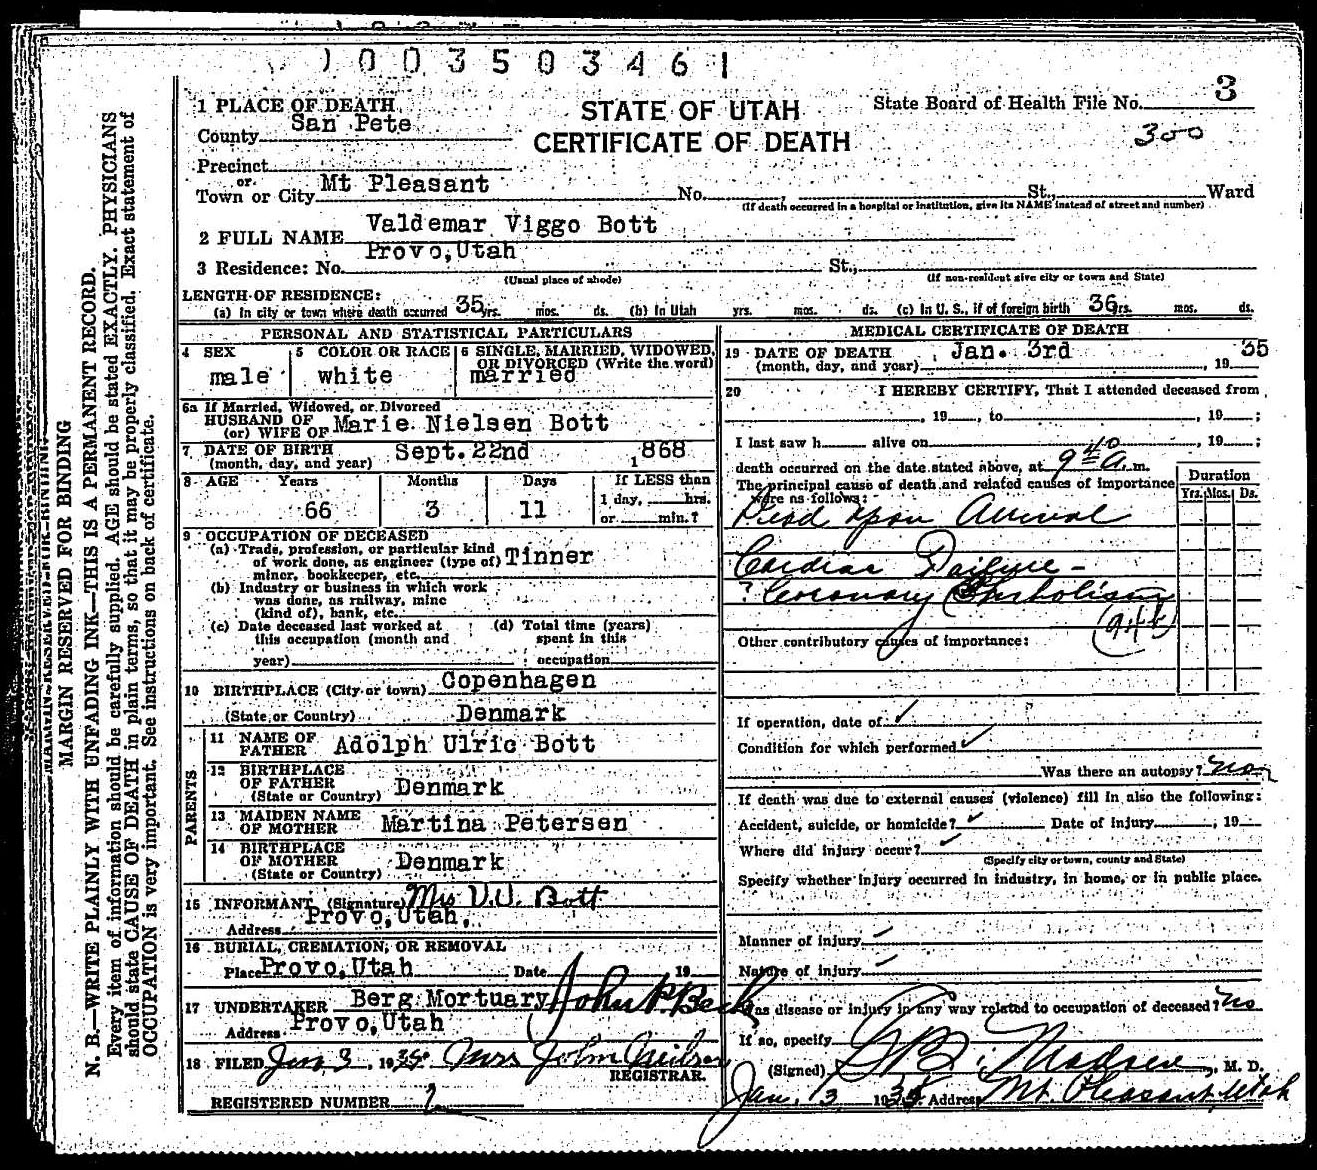 1003503461
3
300
STATE OF UTAH
CERTIFICATE OF DEATH
State Board of Health File No.
1 PLACE OF DEATH
County San Pete
Precinct
or
Town or City Mt Pleasant No. St., Ward
(If death occurred in a hospital or institution, give its NAME instead of street and number)
2 FULL NAME Valdemar Viggo Bott
3 Residence: No. Provo, Utah St.,
(Usual place of abode) (If non-resident give city or town and State)
LENGTH OF RESIDENCE:
(a) In city or town where death occurred 35 yrs. mos. ds. (b) In Utah yrs. mos. ds. (c) In U. S., if of foreign birth 36 yrs. mos. ds.
PERSONAL AND STATISTICAL PARTICULARS
4 SEX male
5 COLOR OR RACE white
6 SINGLE, MARRIED, WIDOWED, OR DIVORCED (Write the word) married
6a If Married, Widowed, or Divorced
HUSBAND OF
(or) WIFE OF Marie Nielsen Bott
7 DATE OF BIRTH
(month, day, and year) Sept. 22nd 1868
8 AGE Years 66 Months 3 Days 11
If LESS than
1 day, hrs.
or min.?
9 OCCUPATION OF DECEASED
(a) Trade, profession, or particular kind
of work done, as engineer (type of) Tinner
miner, bookkeeper, etc.
(b) Industry or business in which work
was done, as railway, mine
(kind of), bank, etc.
(c) Date deceased last worked at
this occupation (month and
year)
(d) Total time (years)
spent in this
occupation
10 BIRTHPLACE (City or town) Copenhagen
(State or Country) Denmark
PARENTS
11 NAME OF
FATHER Adolph Ulric Bott
12 BIRTHPLACE
OF FATHER
(State or Country) Denmark
13 MAIDEN NAME
OF MOTHER Martina Petersen
14 BIRTHPLACE
OF MOTHER
(State or Country) Denmark
15 INFORMANT (Signature) Mrs V.V. Bott
Address Provo, Utah,
16 BURIAL, CREMATION, OR REMOVAL
Place Provo, Utah Date 19
17 UNDERTAKER Berg Mortuary John P. Beck
Address Provo, Utah
18 FILED Jan 3, 1935. Mrs John Neilson
REGISTRAR.
REGISTERED NUMBER 2
MEDICAL CERTIFICATE OF DEATH
19 DATE OF DEATH
(month, day, and year) Jan. 3rd, 1935
20 I HEREBY CERTIFY, That I attended deceased from
, 19 , to , 19 ;
I last saw h alive on , 19 ;
death occurred on the date stated above, at 9 40 A. m.
The principal cause of death and related causes of importance
were as follows:
Duration
Yrs. Mos. Ds.
Dead upon Arrival
Cardiac Failure -
? Coronary Embolism
Other contributory causes of importance:
If operation, date of
Condition for which performed
Was there an autopsy? no
If death was due to external causes (violence) fill in also the following:
Accident, suicide, or homicide? Date of injury , 19
Where did injury occur?
(Specify city or town, county and State)
Specify whether injury occurred in industry, in home, or in public place.
Manner of injury
Nature of injury
Was disease or injury in any way related to occupation of deceased? no
If so, specify
(Signed) Madsen, M. D.
Jan. 3 1935. Address Mt. Pleasant, Utah
MARGIN RESERVED FOR BINDING
N. B.—WRITE PLAINLY WITH UNFADING INK—THIS IS A PERMANENT RECORD.
Every item of information should be carefully supplied. AGE should be stated EXACTLY. PHYSICIANS
should state CAUSE OF DEATH in plain terms, so that it may be properly classified. Exact statement of
OCCUPATION is very important. See instructions on back of certificate.